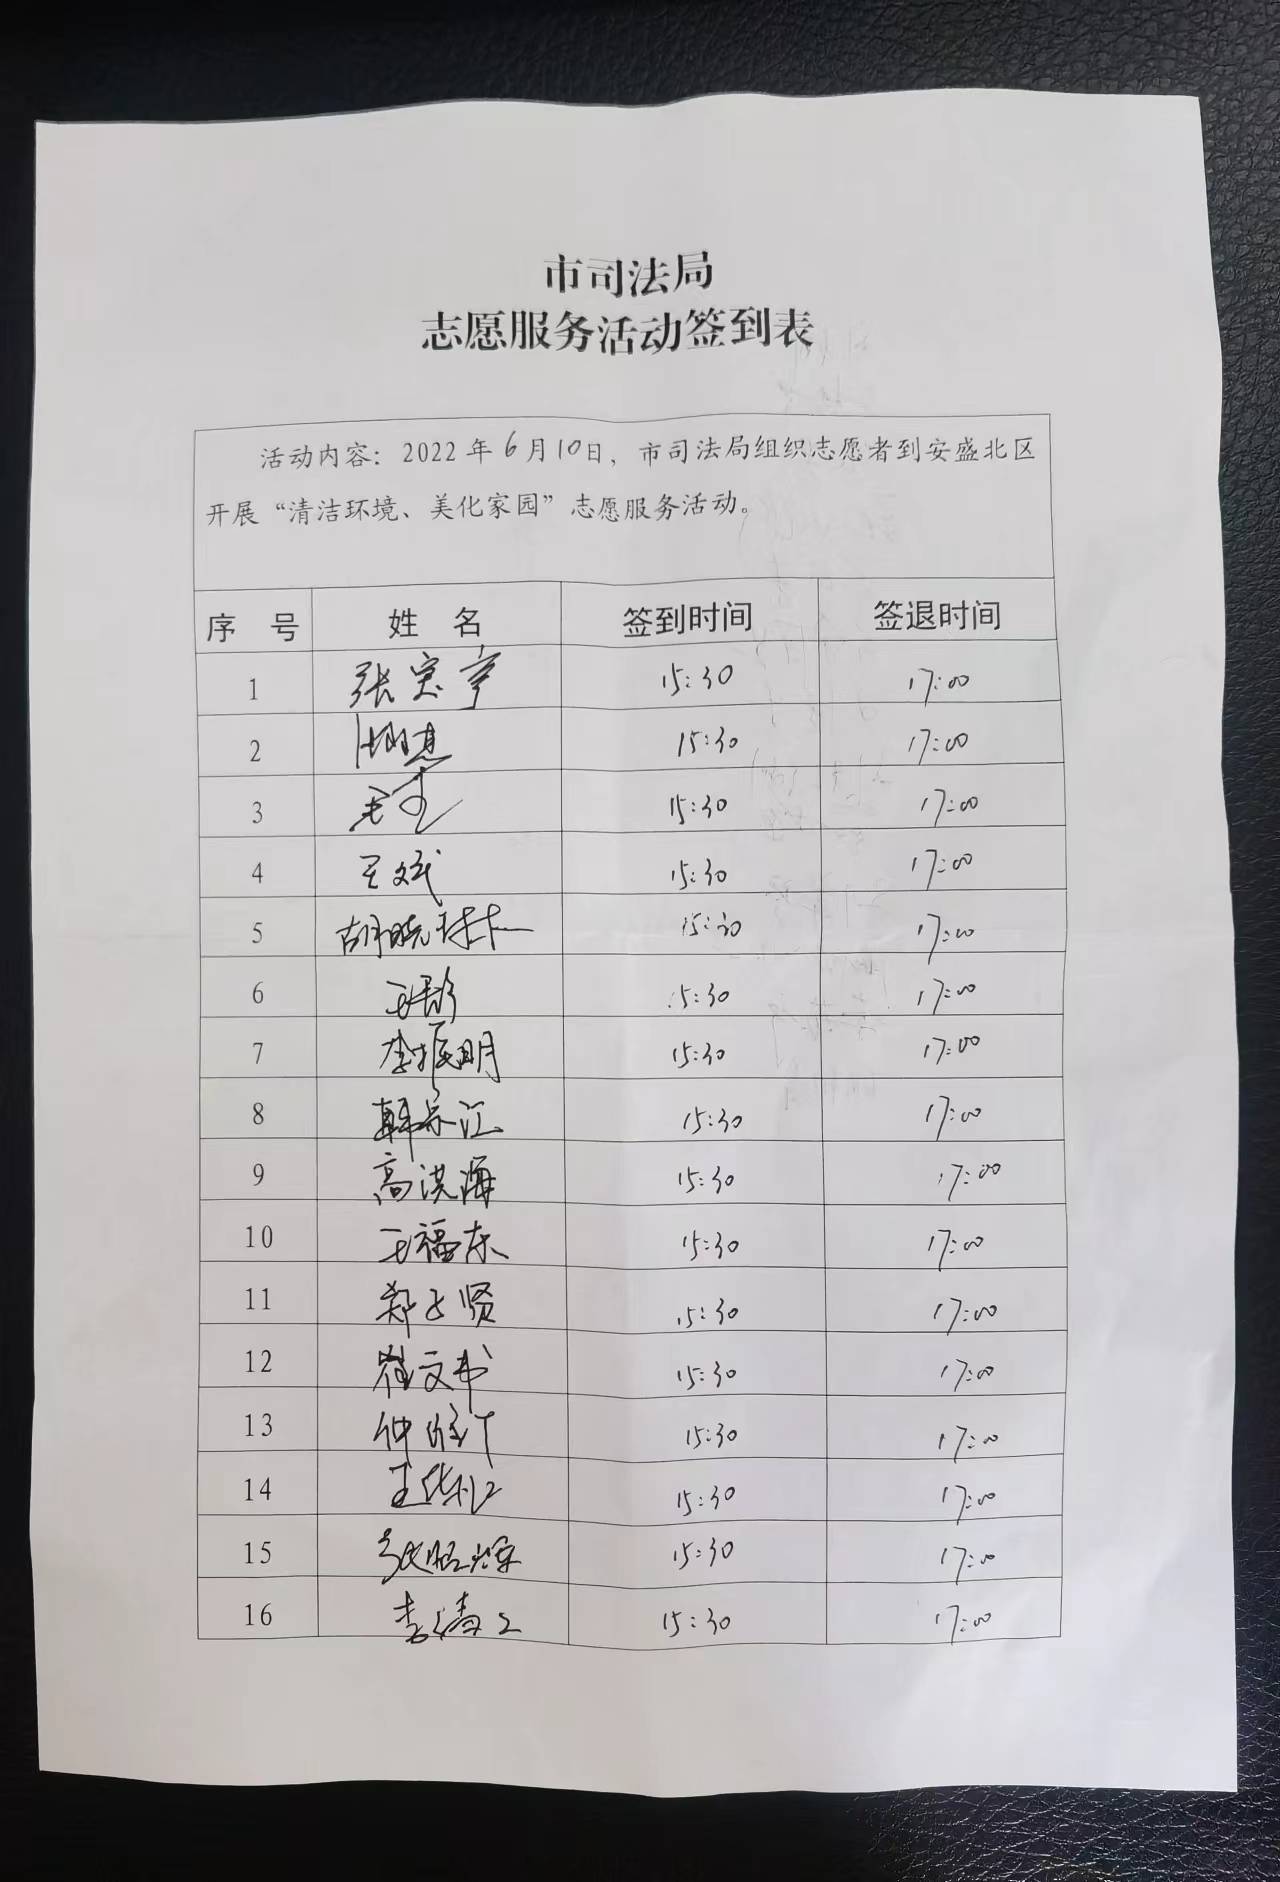 市司法局
志愿服务活动签到表
活动内容：2022年6月10日，市司法局组织志愿者到安盛北区
开展“清洁环境、美化家园”志愿服务活动。
序 号 姓 名 签到时间 签退时间
1 张宝亭 15:30 17:00
2 15:30 17:00
3 15:30 17:00
4 王斌 15:30 17:00
5 胡晓 15:30 17:00
6 王 15:30 17:00
7 李振明 15:30 17:00
8 韩宗江 15:30 17:00
9 高洪海 15:30 17:00
10 王福东 15:30 17:00
11 郑 贤 15:30 17:00
12 崔文书 15:30 17:00
13 仲 15:30 17:00
14 王 15:30 17:00
15 张 15:30 17:00
16 李 15:30 17:00